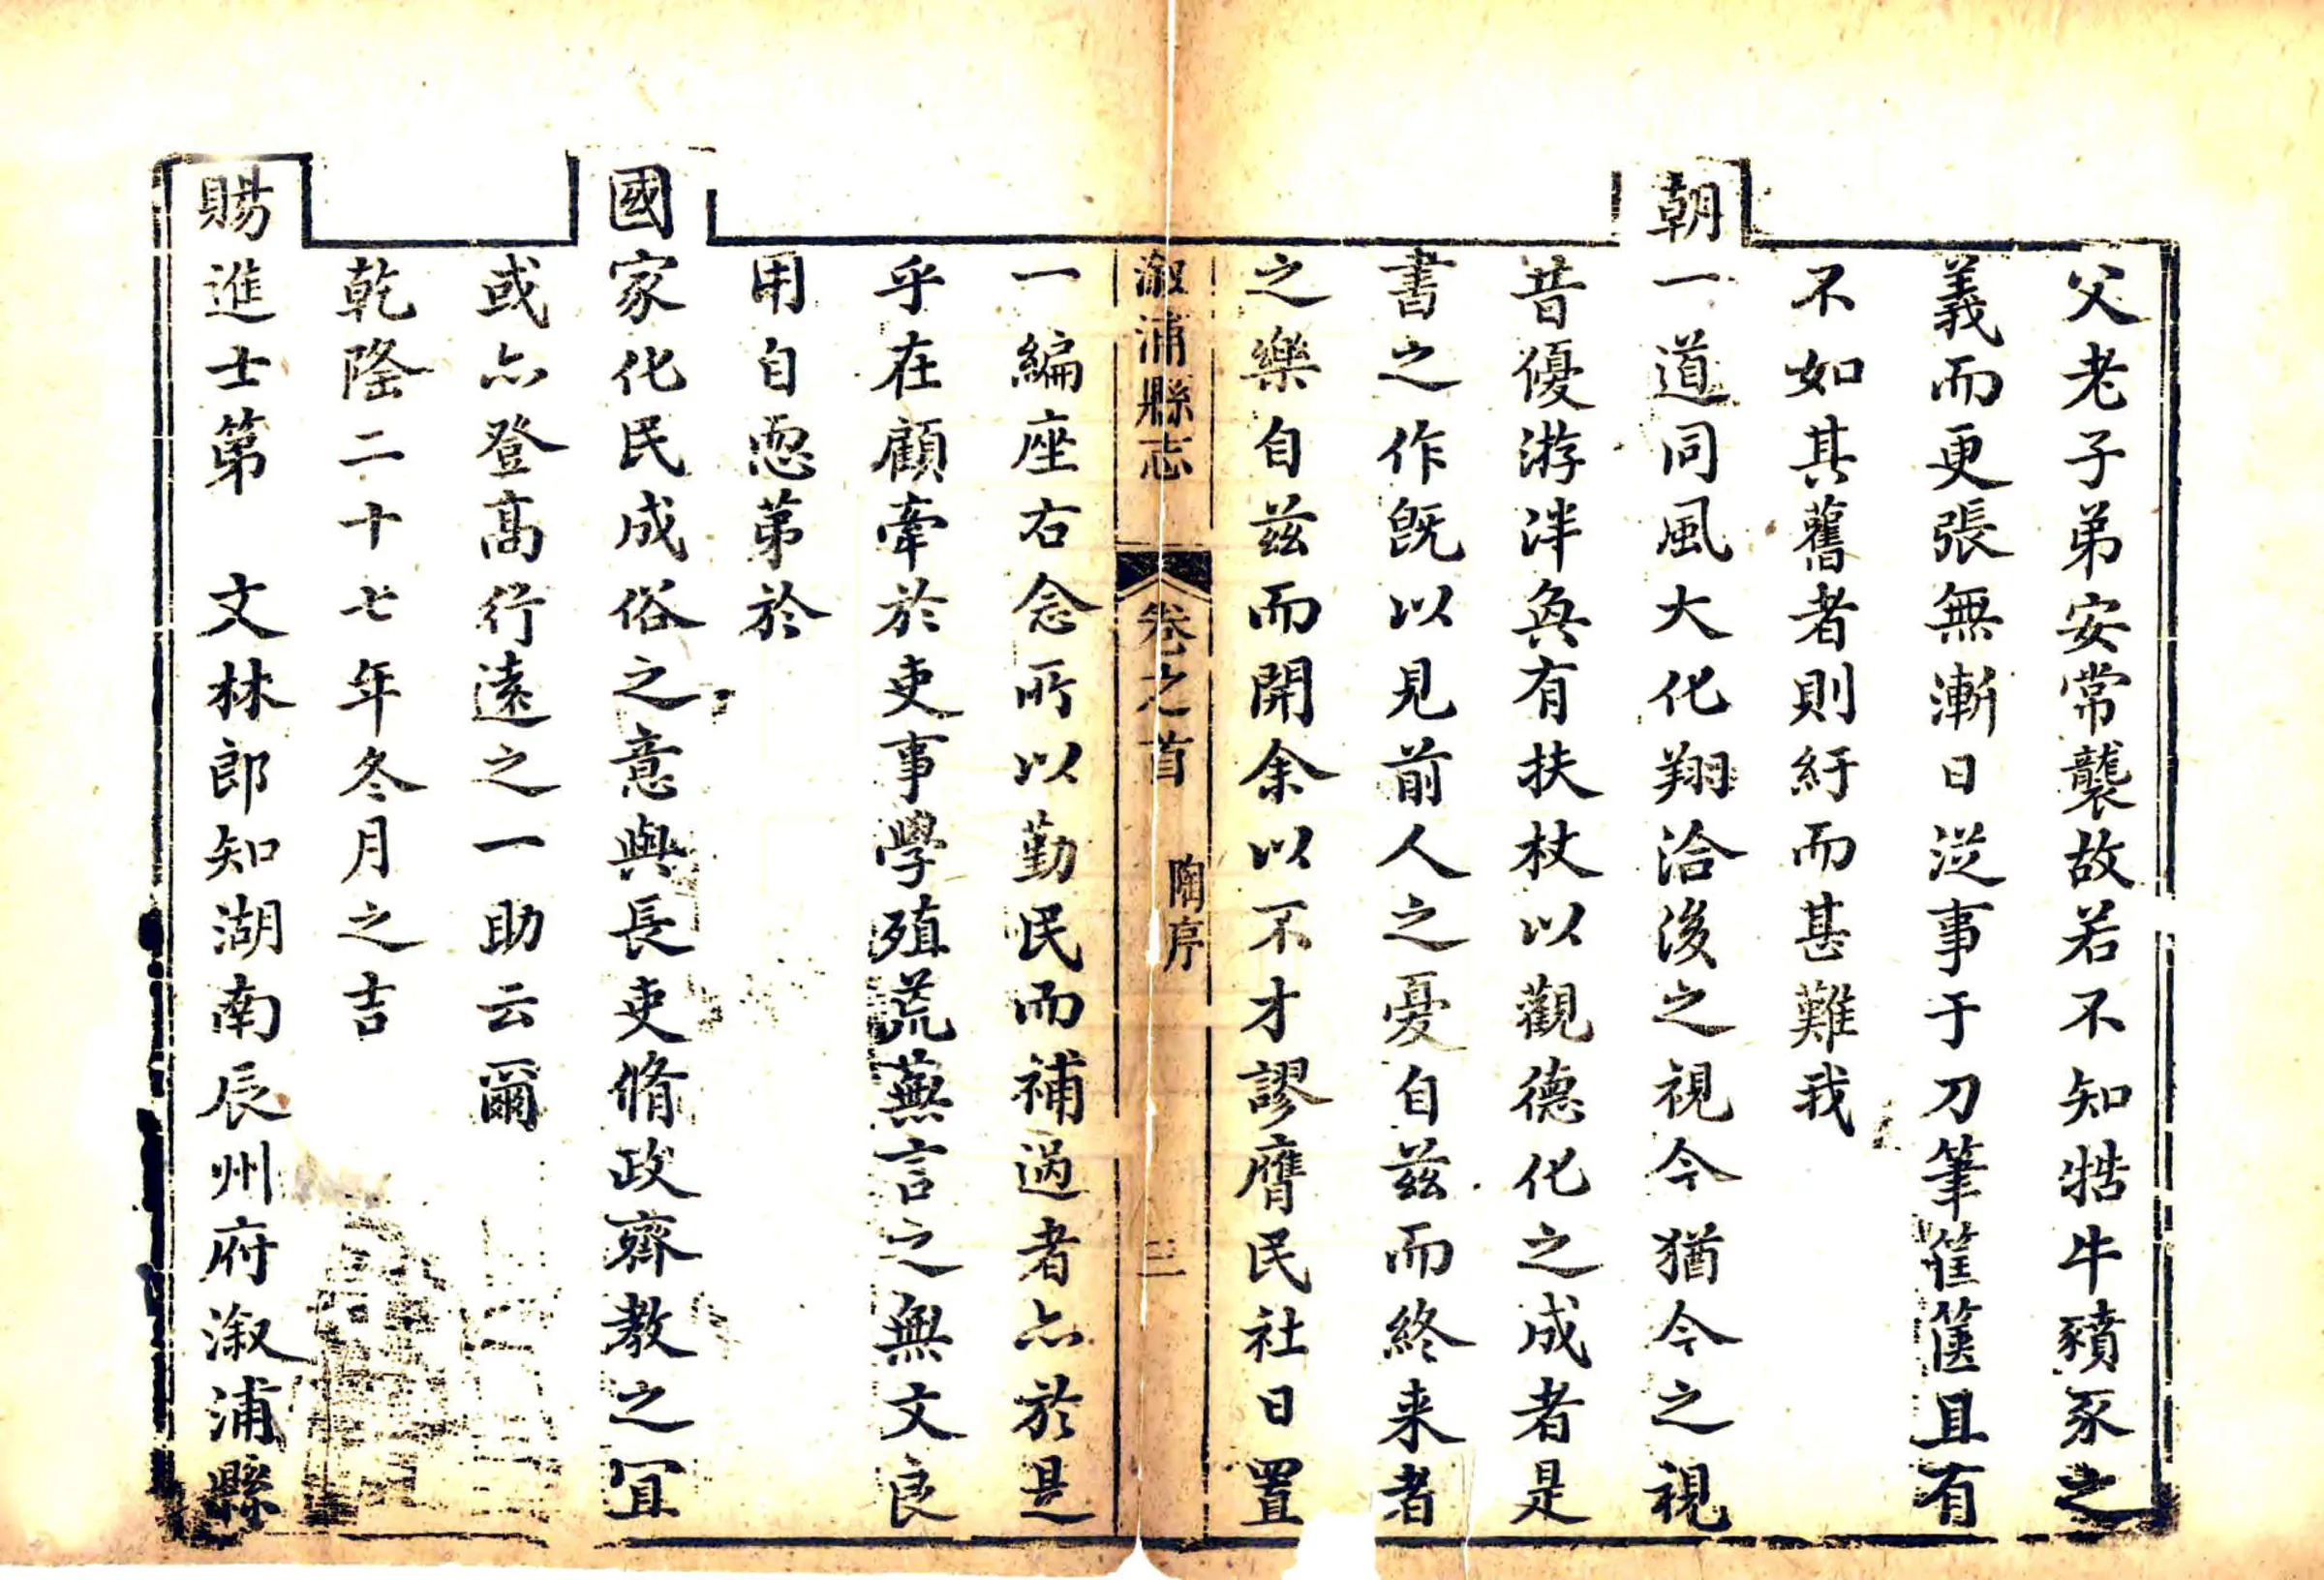 父老子弟安常襲故若不知牿牛豶豕之
義而更張無漸日從事于刀筆筐篋且有
不如其舊者則紆而甚難我
朝一道同風大化翔洽後之視今猶今之視
昔優游泮奐有扶杖以觀德化之成者是
書之作旣以見前人之憂自茲而終来者
之樂自茲而開余以不才謬膺民社日置
溆浦縣志 卷之首 陶序 三
一編座右念所以勤民而補過者亦於是
乎在顧牽於吏事學殖荒蕪言之無文良
用自恧第於
國家化民成俗之意與長吏脩政齊教之冝
或亦登髙行遠之一助云爾
乾隆二十七年冬月之吉
賜進士第 文林郎知湖南辰州府溆浦縣